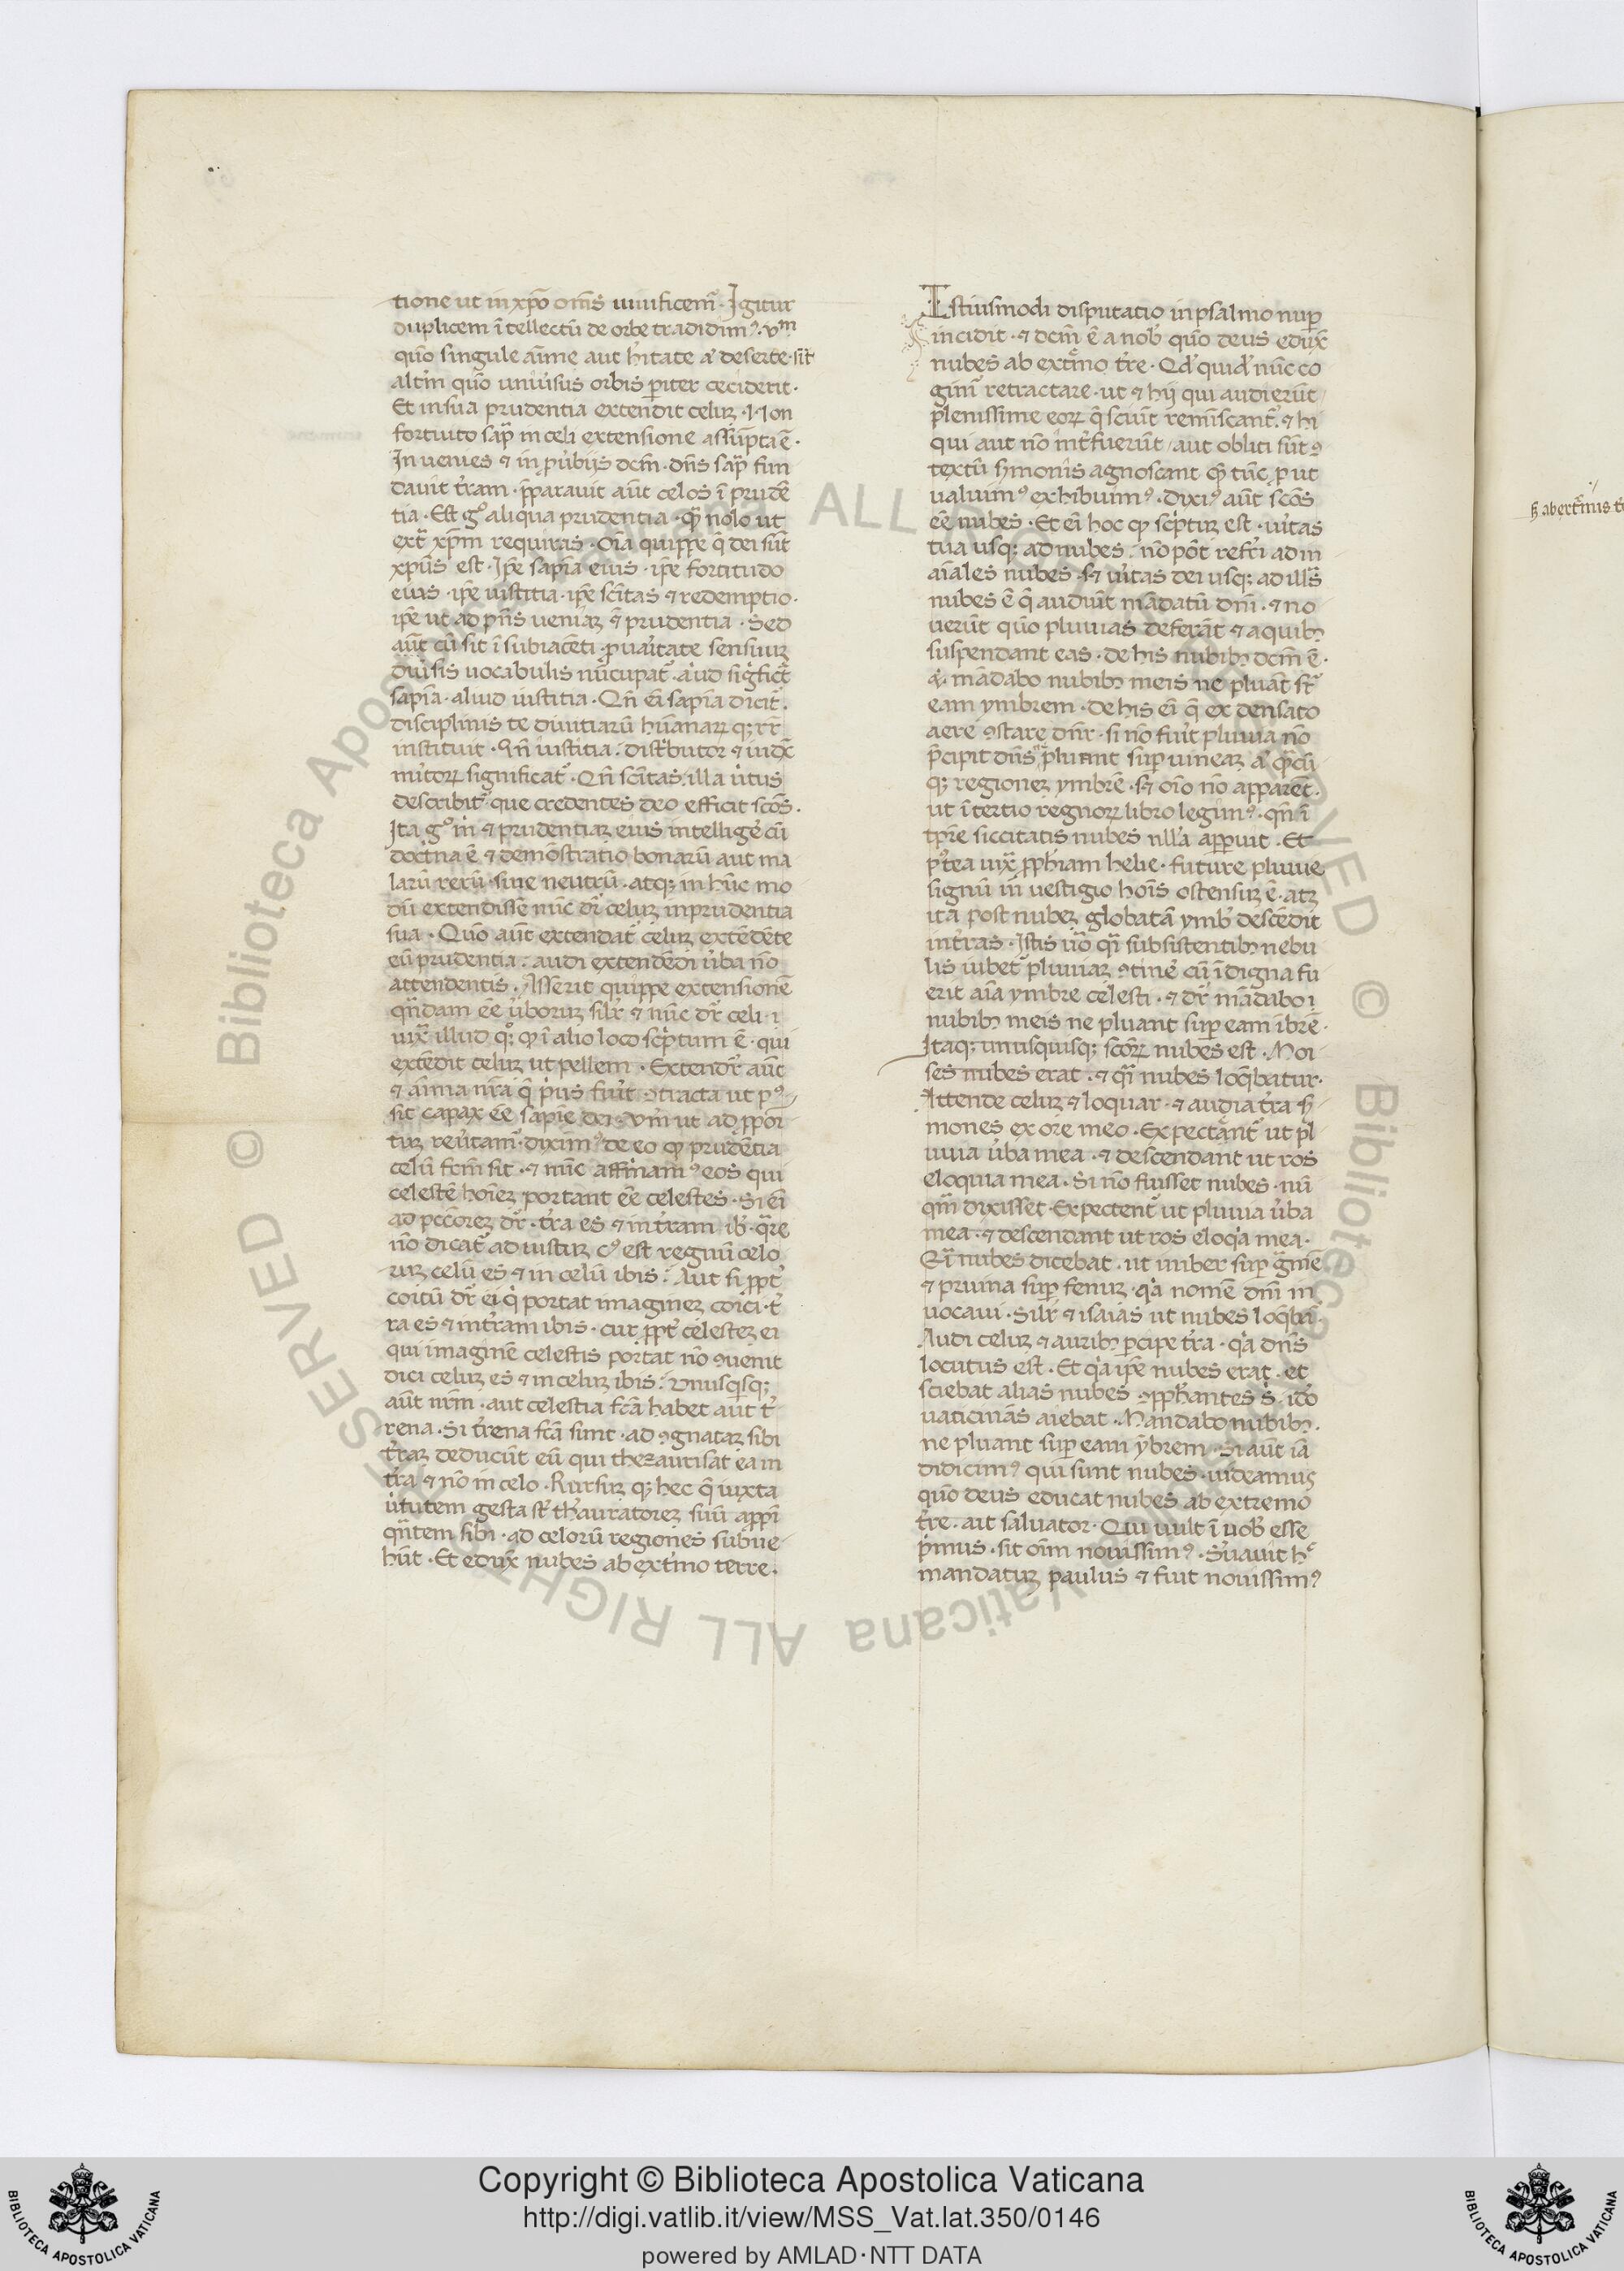 tione ut in xp̄o om̄s uiuificem̃. Igitur
duplicem ĩtellectũ de orbe tradidim᷒. vm
quō singule aĩme aut h̓itate a᷒ deserte. sĩt
alt̓m quō uniu̓sus orbis pariter ceciderit.
Et in sua prudentia extendit celuꝫ. Non
fortuito sap̃ in celi extensione assũpta ẽ.
Inuenies ⁊ in pu̓biis dcm̃. dñs sap̃ fun
dauit t̓ram. p̃parauit aũt celos ĩ prudẽ
tia. Est gº aliqua prudentia. qm̃ nolo ut
ext̃ xp̃m requiras. Oĩa quippe q̃ dei sũt
xp̃us est. Ip̃e sapĩa eius. ip̃e fortitudo
eius. ip̃e iustitia. ip̃e sc̃itas ⁊ redemptio.
ip̃e ut ad p̃ns ueniaꝫ ⁊ prudentia. Sed
aũt cũ sit ĩ subiacẽti. p uai̓tate sensuuꝫ
diu̓sis uocabulis nũcupat᷒. aliud sigfict̃
sapĩa. aliud iustitia. Qñ eĩ sapĩa dicit᷒.
disciplinis te diuitiarũ hũanarꝝ qꝫ rr̃
instituit. Qñ iustitia. dist̓butor ⁊ iudx̃
mi̓torꝝ significat᷒. Qñ sc̃itas. illa u̓tus
describit᷒. que credentes deo efficit sc̃os.
Ita gº m̓ ⁊ prudentiaꝫ eius intellige᷒ cũ
doct̓na ẽ ⁊ demõstratio bonarũ aut ma
larũ rerũ. siue neutrũ. atqꝫ in hũc mo
dũ extendissẽ nũc dr̃ celuꝫ in prudentia
sua. Quō aũt extendat᷒ celuꝫ extẽdẽte
eũ prudentia. audi extendẽdi u̓ba nõ
attendentis. Asserit quippe extensionẽ
qñdam eẽ u̓boruꝫ silr̃ ⁊ nũc dr̃ celi. ⁊
iuxᷓ illud qº. ꝙ ĩ alio loco sc̓ptum ẽ. qui
extẽdit celuꝫ ut pellem. Extendr̃ aũt
⁊ aĩma nr̃a q̃ p̓us fuit ꝯtracta ut p᷒
sit capax eẽ sapĩe dei. Vm̃ ut ad p̱poi
tuꝫ reu̓tam᷒ diximᷤ de eo ꝙ prudẽtia
celũ fcm̃ sit. ⁊ nũc affi̓nam᷒ eos qui
celestẽ hoĩeꝫ portant eẽ celestes. Si eĩ
ad pccõreꝫ dr̃. t̓ra es ⁊ in t̓ram ib̓. qᷓre
nõ dicat᷒ ad iustuꝫ c᷒ est regnũ celo
ruꝫ celũ es ⁊ in celũ ibis. Aut si p̱pt̓
coicũ dr̃ ei q̓ portat imagineꝫ coici. t̓
ra es ⁊ in t̓ram ibis. cur p̱pt̓ celesteꝫ ei
qui imaginẽ celestis portat nõ ꝯuenit
dici celuꝫ es ⁊ in celuꝫ ibis. Vnusq̓sqꝫ
aũt nr̃m. aut celestia fc̃a habet aut t̓
rena. Si t̓rena fc̃a sunt. ad ꝯgnataꝫ sibi
t̓raꝫ deducũt eũ qui thezaurisãt ea in
t̓ra ⁊ nõ in celo. Rursuꝫ qꝫ hec q̃ iuxta
u̓tutem gesta st̃ th̓auratoreꝫ suũ appi
qñtem sibi. ad celorũ regiones subue
hũt. Et eduxᷓ nubes ab ext̓mo terre.
Istiusmodi disputatio in psalmo nup̱
incidit. ⁊ dcm̃ ẽ a nob̓ quō deus eduxᷓ
nubes ab ext̓mo t̓re. Qd̓ quid̓ nũc co
gim᷒ retractare. ut ⁊ hij qui audierũt
plenissime eorꝝ q̃ sciũt remĩscant᷒. ⁊ hi
qui aut nõ int̓fuerũt / aut obliti sũt ꝯ
textũ s̓monis agnoscant qm̃ tũc prout
ualuim᷒ exhibuim᷒. diximᷤ aũt scõs
eẽ nubes. Et eĩ hoc ꝙ sc̓ptuꝫ est. u̓itas
tua usqꝫ ad nubes. nõ põt refr̃i ad in
aĩales nubes. sꝫ u̓itas dei usqꝫ ad ill᷒
nubes ẽ q̃ audiũt mãdatũ dñi. ⁊ no
uerũt quō pluuias deferãt ⁊ a quibꝫ
suspendant eas. de his nubibꝫ dcm̃ ẽ.
q̓. mãdabo nubibꝫ meis ne pluãt sr̃
eam ymbrem. de his eĩ q̃ ex densato
aere ꝯstare dn̄r. si nõ fui̓t pluuia nõ
p̓cipit dñs pluant sup̱ uineaꝫ a᷒ qᷓcũ
qꝫ regioneꝫ ymbrẽ. sꝫ oĩo nõ apparẽt.
ut ĩ tertio regnorꝝ libro legim᷒. qñ ĩ
tp̃re siccitatis nubes nlla apparuit. Et
p̓tea uixᷓ p̱phiam helie. future pluuie
signũ in uestigio hoĩs ostensuꝫ ẽ. atꝫ
ita post nubeꝫ globatã ymb̓ descẽdit
in t̓ras. Istis u̓o qñ subsistentibꝫ nebu
lis iubet᷒ pluuiaꝫ ꝯtine᷒ cũ ĩdigna fu
erit aĩa ymbre celesti. ⁊ dr̃ mãdabo ⁊
nubibꝫ meis ne pluant sup̱ eam ĩbrẽ.
Itaqꝫ unusquisqꝫ scõrꝝ nubes est. Moi
ses nubes erat. ⁊ qĩ nubes loq̃batur.
Attende celuꝫ ⁊ loquar. ⁊ audia t̓ra s̓
mones ex ore meo. Expectant᷒ ut pl
uuia u̓ba mea. ⁊ descendant ut ros
eloquia mea. Si nõ fuisset nubes. nũ
qm̃ dixisset. Expectent᷒ ut pluuia u̓ba
mea. ⁊ descendant ut ros eloq̓a mea.
Qĩ nubes dicebat. ut imber sup̱ gᷓmẽ
⁊ pruina sup̱ fenuꝫ. q̓a nomẽ dñi in
uocaui. Silr̃ ⁊ isaias ut nubes loq̃bat᷒.
Audi celuꝫ ⁊ auribꝫ percipe t̓ra. q̓a dñs
locutus est. Et q̓a ip̃e nubes erat. et
sciebat alias nubes ꝯp̱ph̓antes s̓. ido̓
uaticinãs aiebat. Mandabo nubibꝫ.
ne pluant sup̱ eam ybrem. Si aũt iã
didicim᷒ qui sunt nubes. uideamus
quō deus educat nubes ab extremo
t̓re. ait saluator. Qui uult ĩ uob̓ esse
p̓mus. sit oĩm nouissim᷒. S̓uauit hº
mandatuꝫ paulus ⁊ fuit nouissim᷒
Copyright © Biblioteca Apostolica Vaticana
http://digi.vatlib.it/view/MSS_Vat.lat.350/0146
powered by AMLAD·NTT DATA